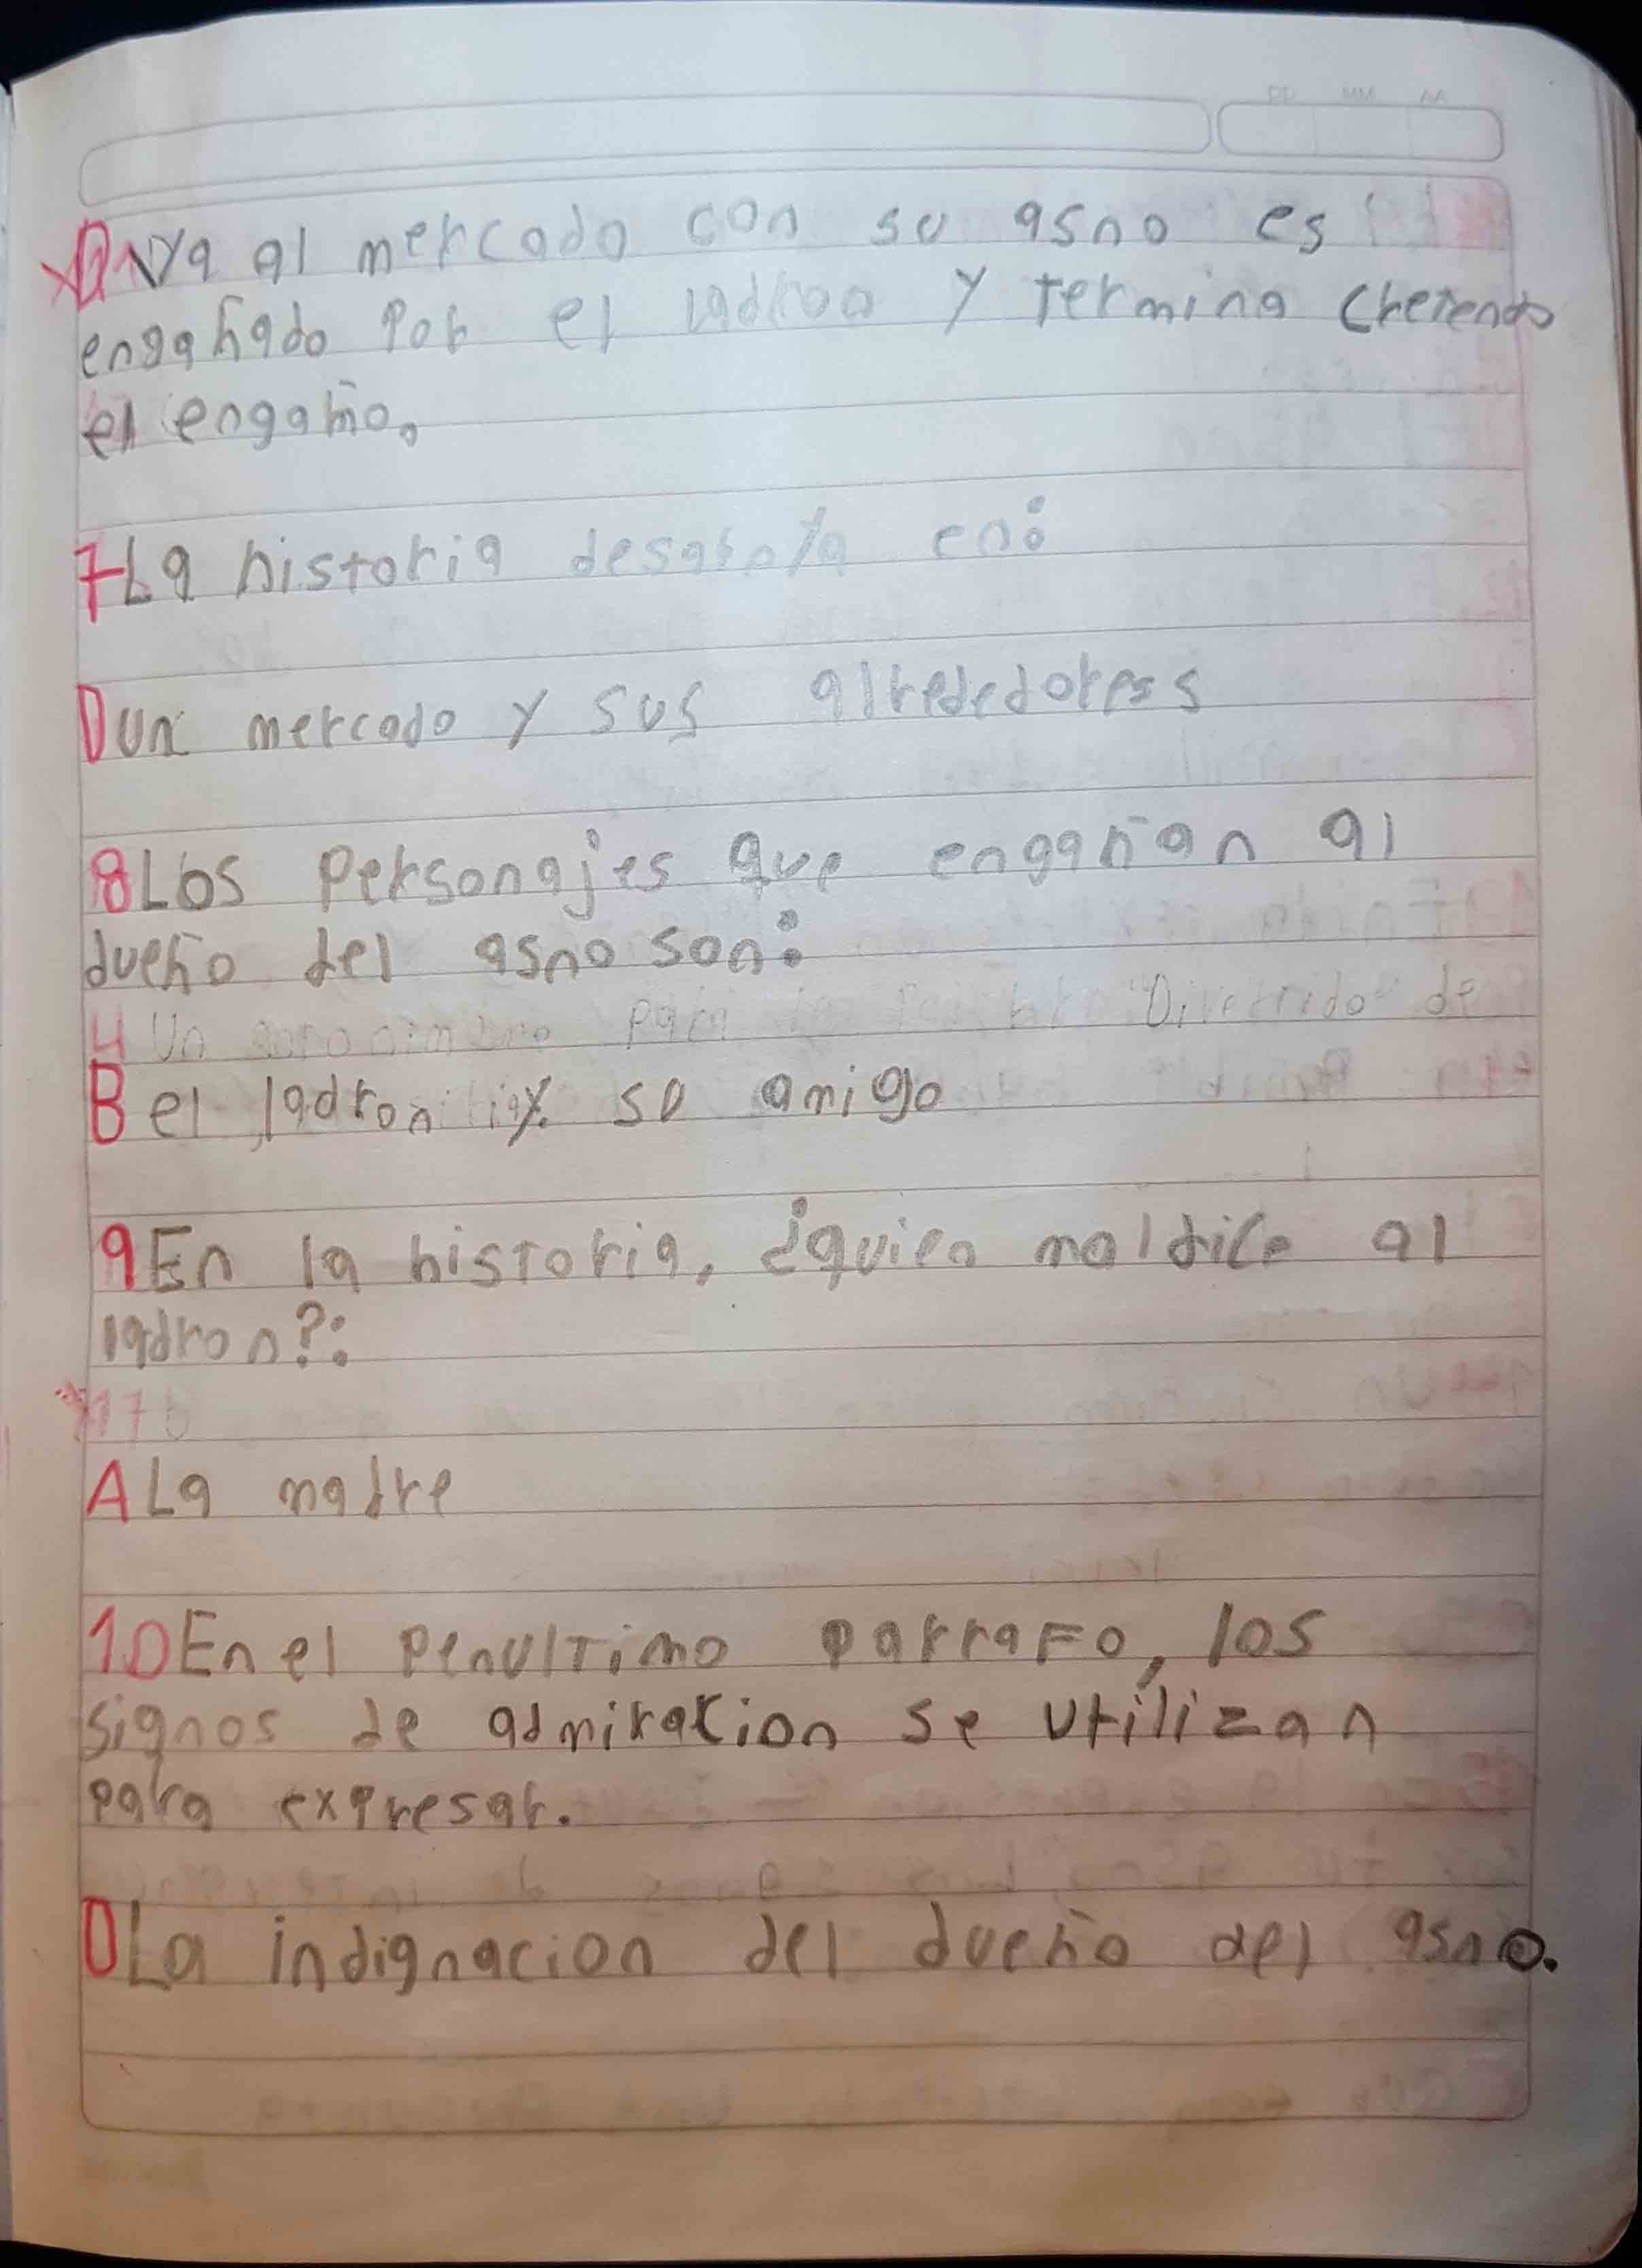 DD MM AA
D Va al mercado con su asno es
engañado por el ladron y termina creiendo
el engaño.
7 La historia desarolla en:
D un mercado y sus alrededoress
8 Los personajes que engañan al
dueño del asno son:
4 Un para "Divertido" de
B el ladron y su amigo
9 En la historia, ¿quien maldice al
ladron?:
A La madre
10 En el penultimo parrafo, los
signos de admiracion se utilizan
para expresar.
D La indignacion del dueño del asno.